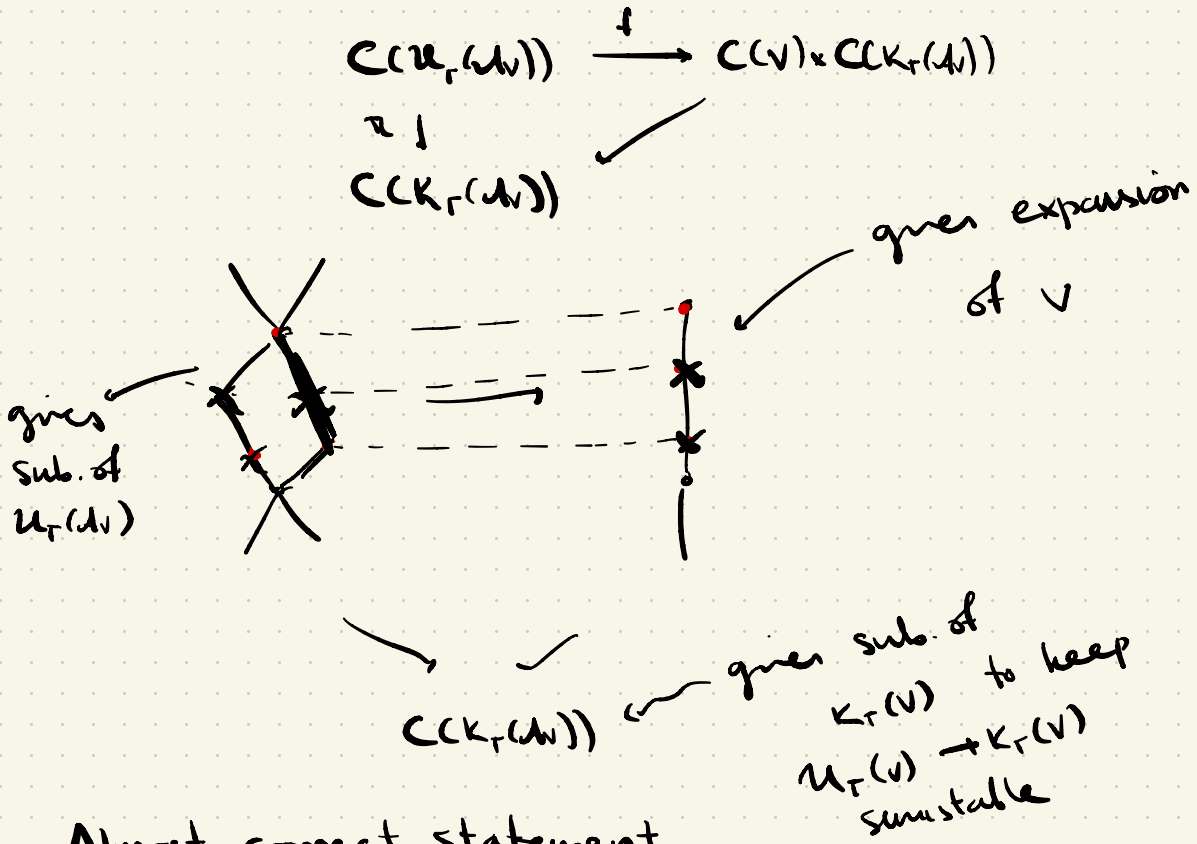 C(U_Γ(A_V)) f→ C(V) × C(K_Γ(A_V))
π ↓
C(K_Γ(A_V))
gives expansion
of V
gives
sub. of
U_Γ(A_V)
C(K_Γ(A_V))
gives sub. of
K_Γ(V) to keep
U_Γ(V) → K_Γ(V)
semistable
Almost correct statement